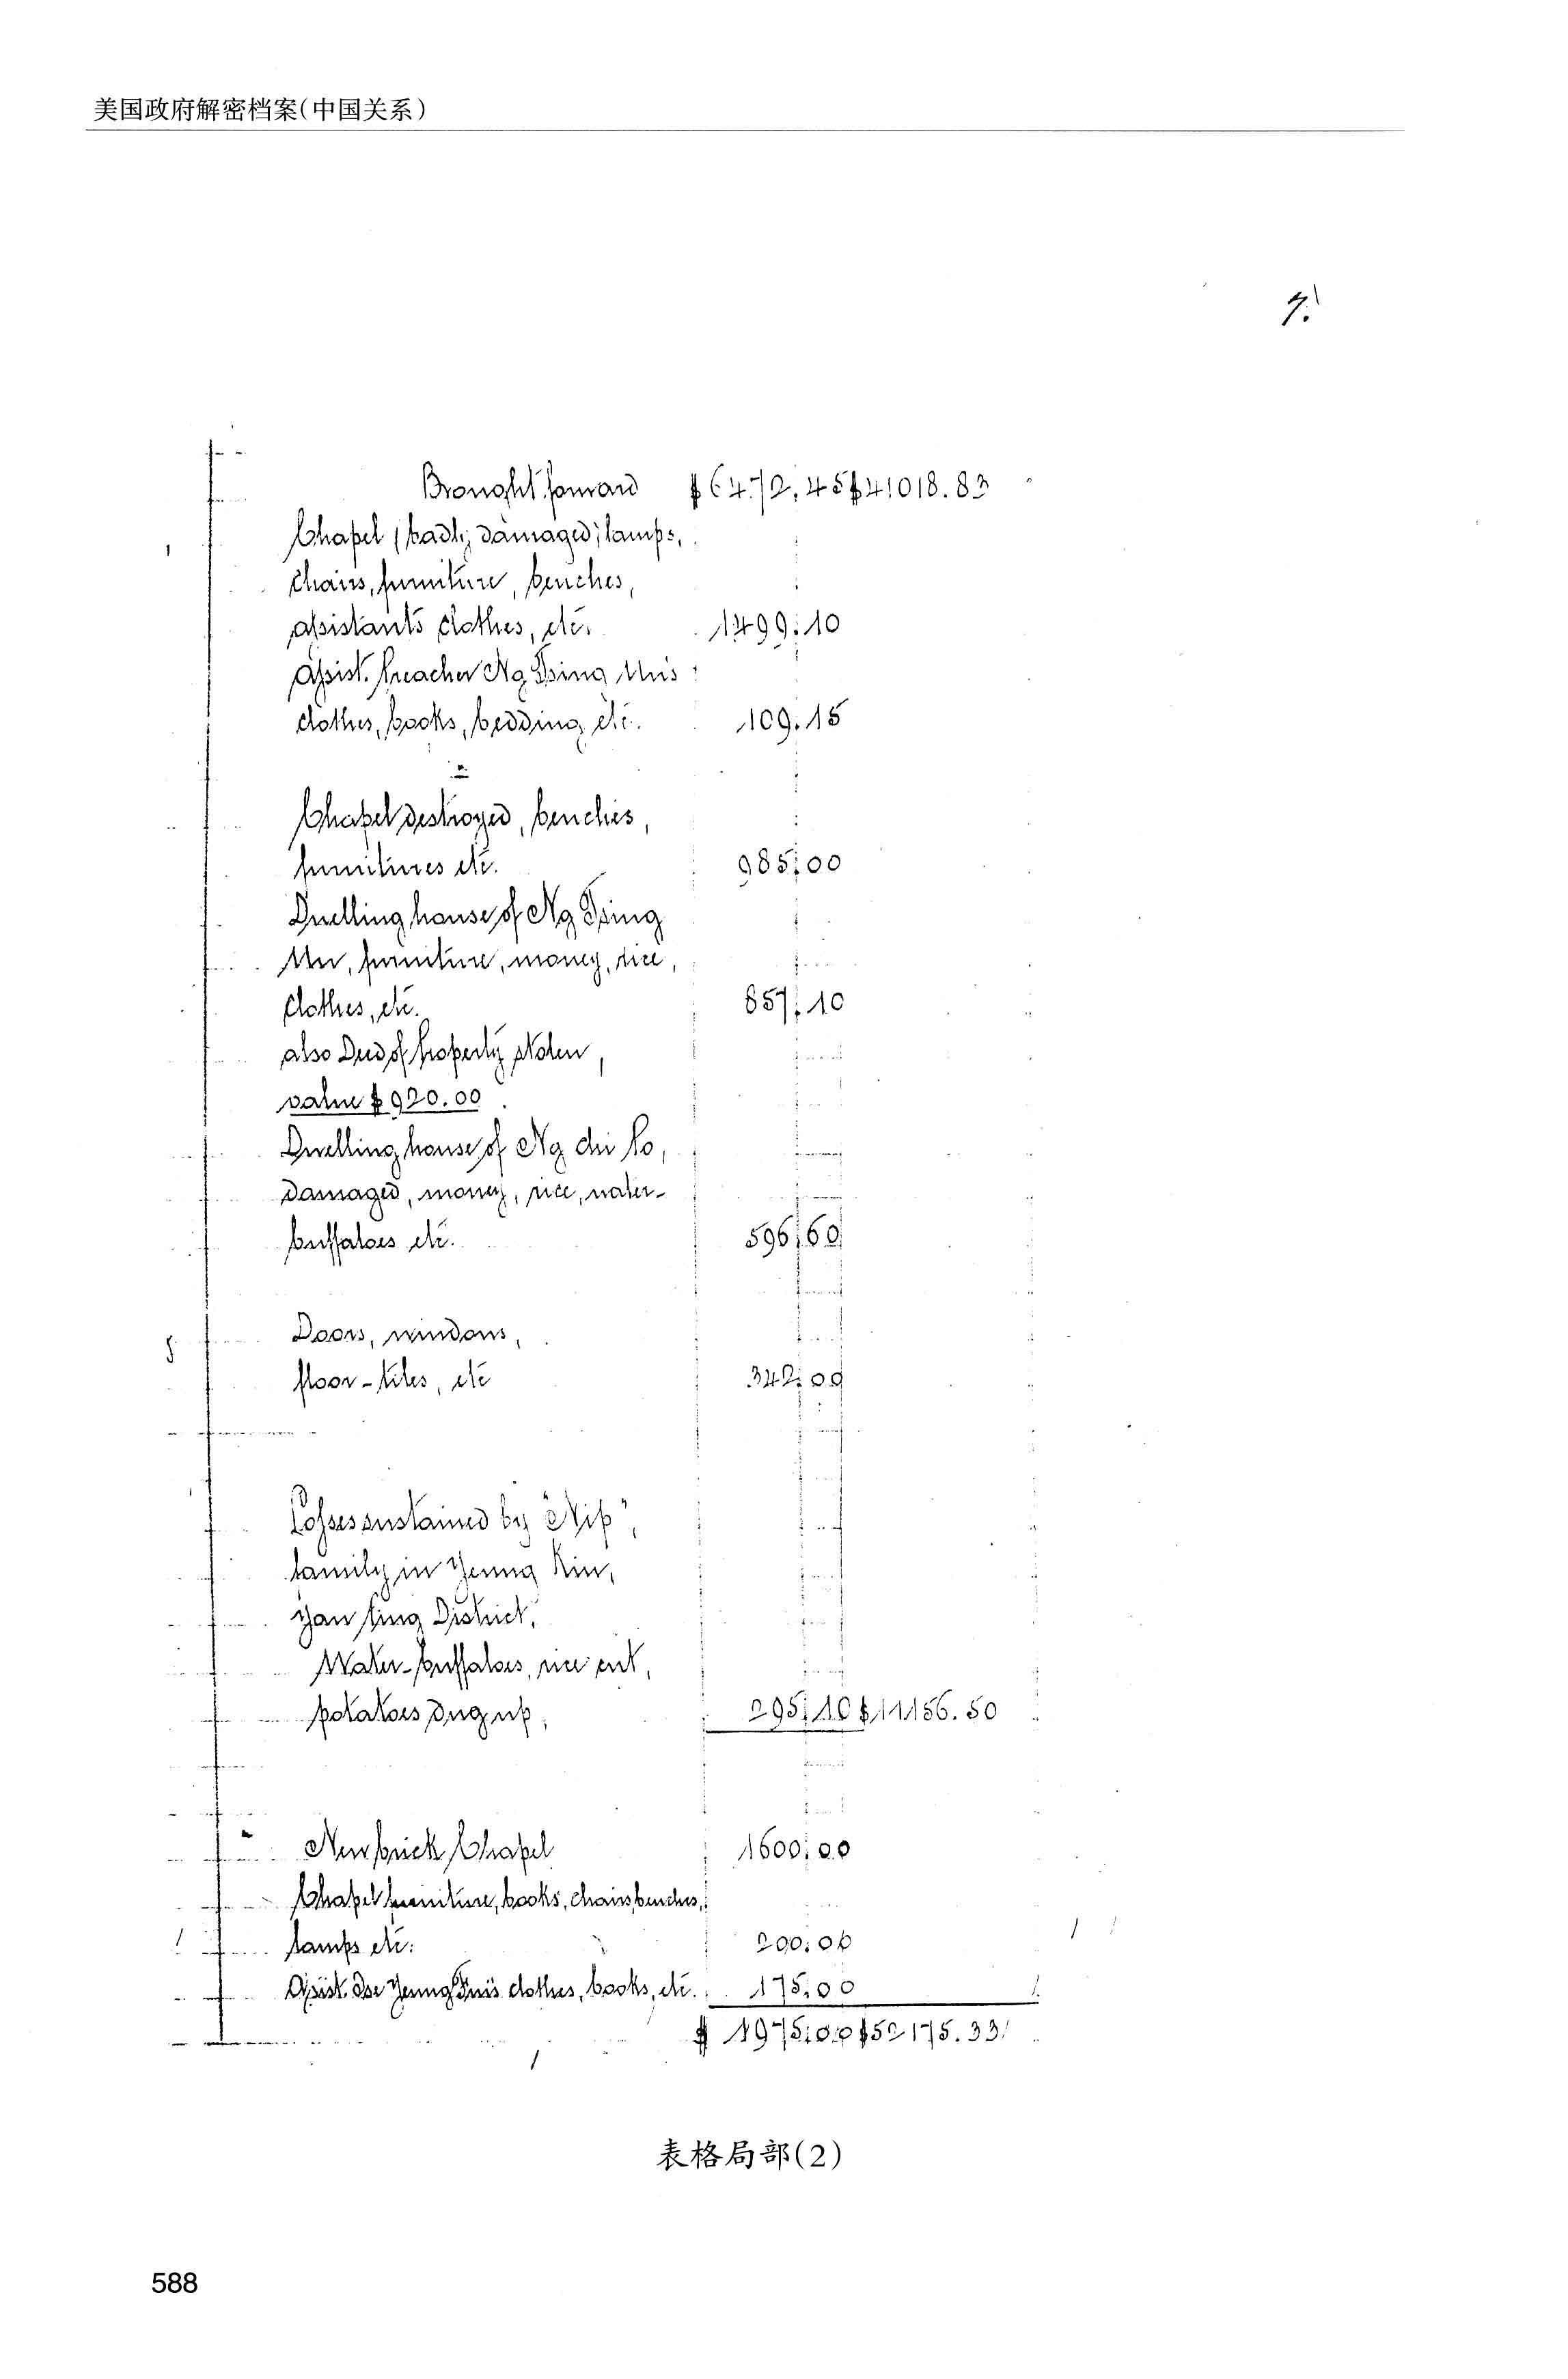 美国政府解密档案(中国关系)
7.
Brought forward $6472.45 $41018.83
Chapel (badly damaged) lamps,
chairs, furniture, benches,
assistants clothes, etc. 1499.10
Assist. Preacher Ng Tsing Un's
clothes, books, bedding, etc. 109.15
Chapel destroyed, benches,
furnitures etc. 985.00
Dwelling house of Ng Tsing
Un, furniture, money, rice,
clothes, etc. 857.10
also Deed of Property stolen,
value $920.00
Dwelling house of Ng
damaged, money, rice, water-
buffaloes etc. 596.60
Doors, windows,
floor-tiles, etc 342.00
Losses sustained by "Nip",
family in Yeung Kin,
Yan Ping District,
Water-buffaloes, rice cut,
potatoes dug up, 295.10 $11156.50
New brick Chapel 1600.00
Chapel furniture, books, chairs, benches,
lamps etc. 200.00
Assist. Yeung clothes, books, etc. 175.00
$ 1975.00 $52175.33
表格局部(2)
588